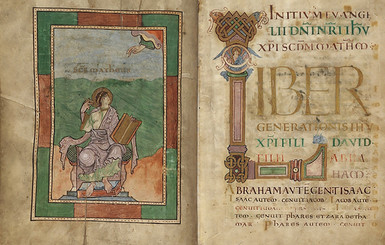 SCS MATHEUS
INITIUM EVANGE
LII DNI NRI IHU
XPI SCDM MATHM
LIBER
GENERATIONIS IHU
XPI FILI DAVID
FILII ABRA
HAM
ABRAHAM AUTE GENT ISAAC
ISAAC AUTEM GENUIT IACOB IACOB AUTE
GENUIT
TEM GENUIT PHARES ET ZARA DE THA
MAR PHARES AUTEM GENUIT